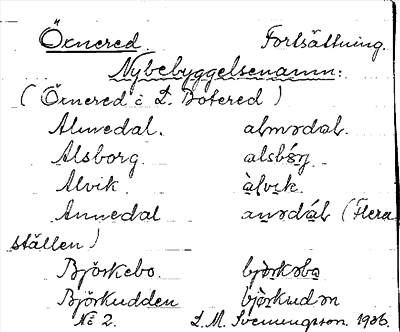 Öxnered. Fortsättning.
Nybebyggelsenamn:
(Öxnered i L. Botered)
Almedal. almədal.
Alsborg. alsbǫrj
Alvik. àlvik
Annedal anədál (Flera
ställen)
Björkebo. bjòrkəbo
Björkudden bjòrkudən
No 2. L.M. Svenungsson. 1936.